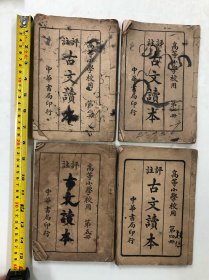 高等小學校用 第一册
評註
古文讀本
中華書局印行
高等小學校用
評註
古文讀本
中華書局印行
高等小學校用 第五册
評註
古文讀本
中華書局印行
高等小學校用 第四册
評註
古文讀本
中華書局印行